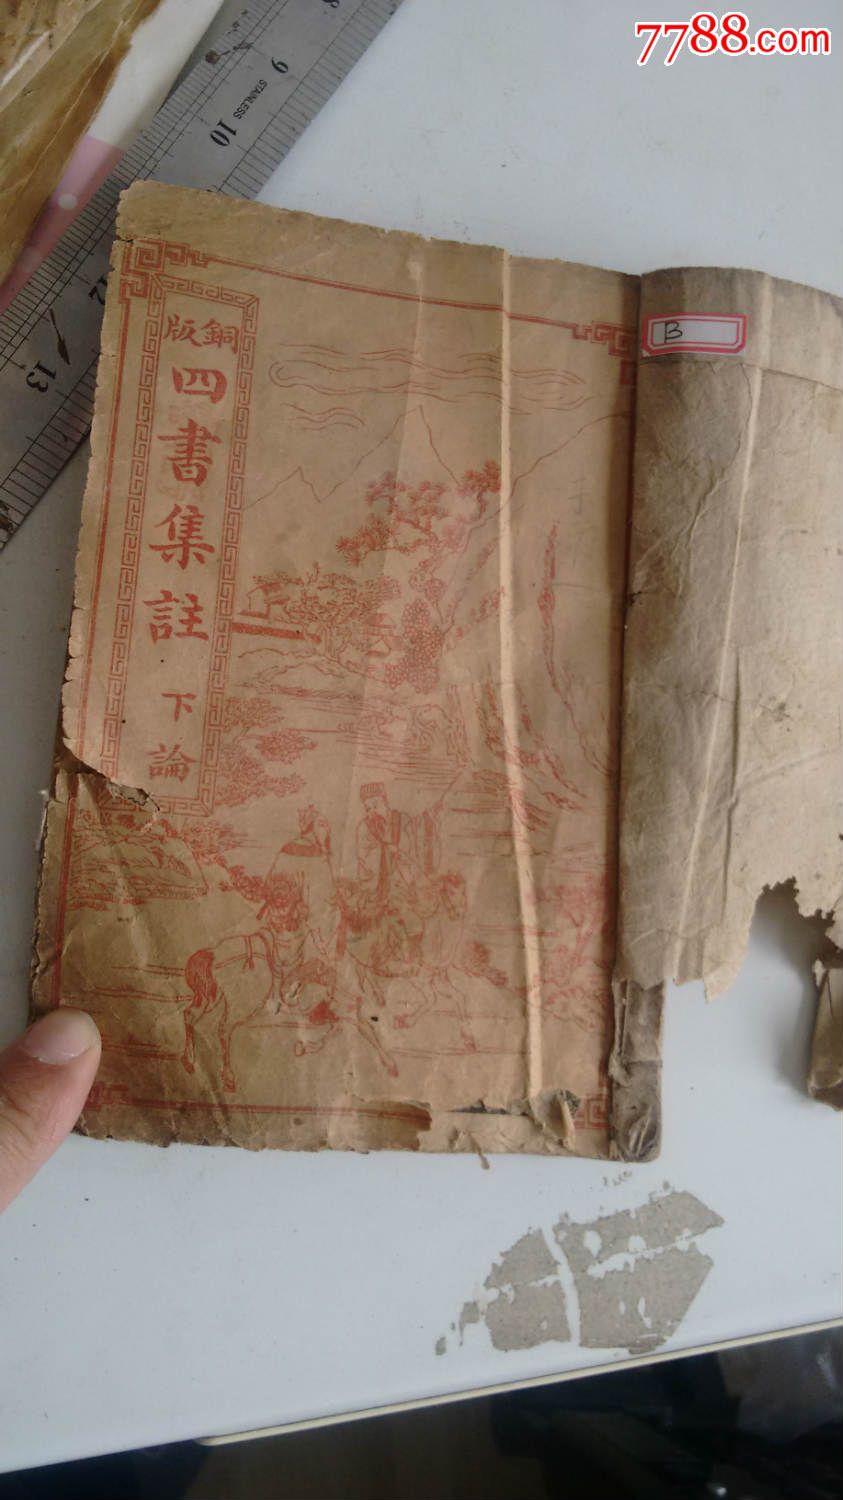 7788.com
8
9
STAINLESS
10
12
13
B
銅版
四書集註
下論